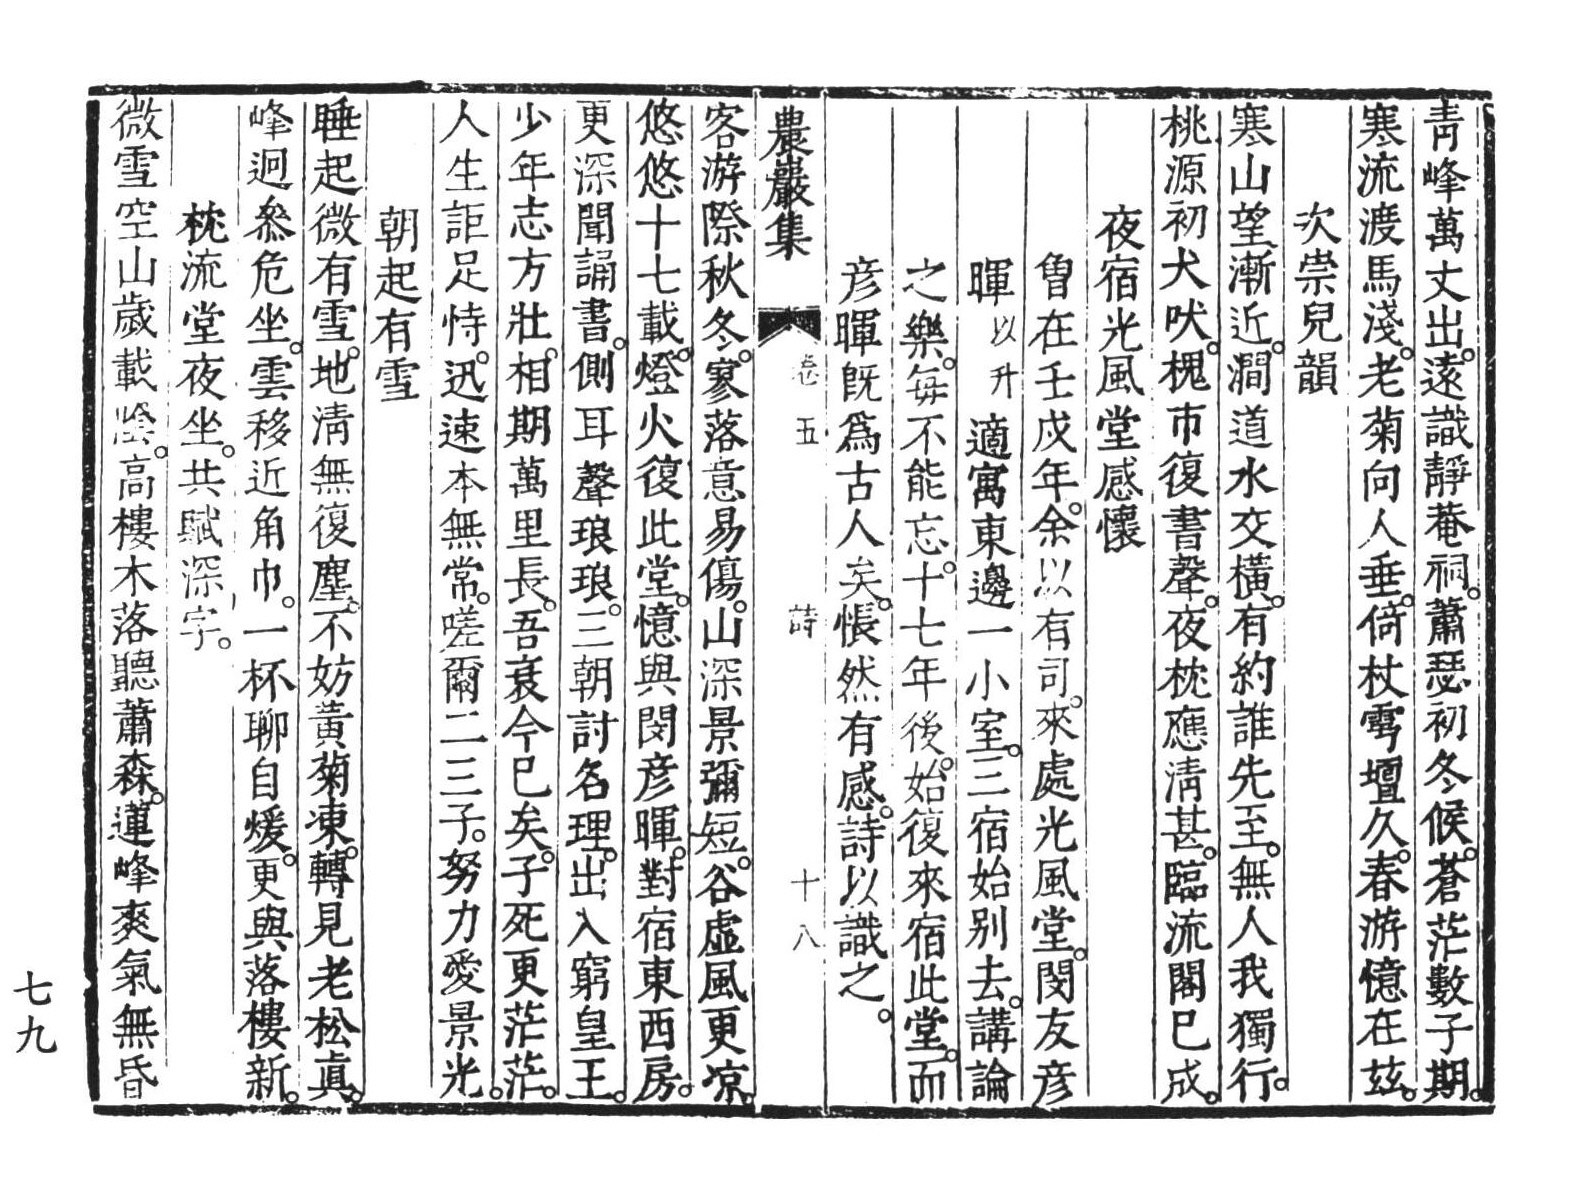 靑峰萬丈出。遠識靜菴祠。蕭瑟初冬候。蒼茫數子期。
寒流渡馬淺。老菊向人垂。倚杖雩壇久。春游憶在玆。
次崇兒韻
寒山望漸近。澗道水交橫。有約誰先至。無人我獨行。
桃源初犬吠。槐市復書聲。夜枕應淸甚。臨流閣已成。
夜宿光風堂感懷
曾在壬戌年。余以有司。來處光風堂。閔友彦
暉以升適寓東邊一小室。三宿始別去。講論
之樂。每不能忘。十七年後。始復來宿此堂。而
彦暉旣爲古人矣。悵然有感。詩以識之。
農巖集 卷五 詩 十八
客游際秋冬。寥落意易傷。山深景彌短。谷虛風更凉。
悠悠十七載。燈火復此堂。憶與閔彦暉。對宿東西房。
更深聞誦書。側耳聲琅琅。三朝討名理。出入窮皇王。
少年志方壯。相期萬里長。吾衰今已矣。子死更茫茫。
人生詎足恃。迅速本無常。嗟爾二三子。努力愛景光。
朝起有雪
睡起微有雪。地淸無復塵。不妨黃菊凍。轉見老松眞。
峰迥叅危坐。雲移近角巾。一杯聊自煖。更與落樓新。
枕流堂夜坐。共賦深字。
微雪空山歲載陰。高樓木落聽蕭森。蓮峰爽氣無昏
七九